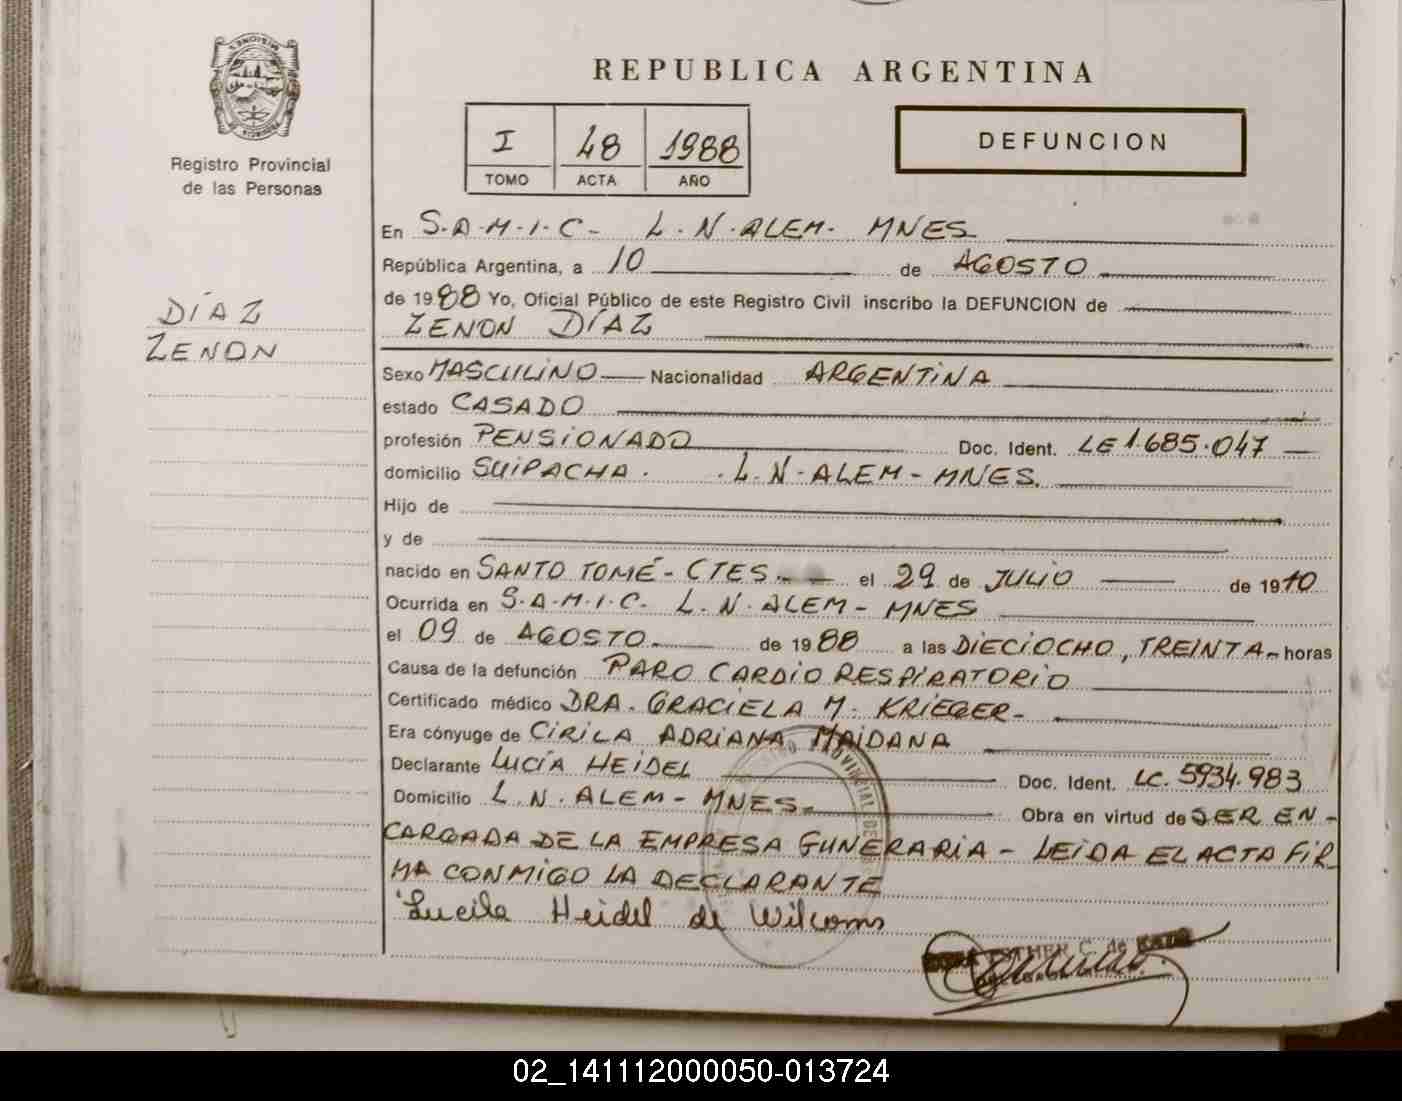 Registro Provincial
de las Personas
DÍAZ
ZENON
REPUBLICA ARGENTINA
I 48 1988
TOMO ACTA AÑO
DEFUNCION
En S.A.M.I.C- L.N.ALEM- MNES
República Argentina, a 10 de AGOSTO
de 1988 Yo, Oficial Público de este Registro Civil inscribo la DEFUNCION de
ZENON DÍAZ
Sexo MASCULINO Nacionalidad ARGENTINA
estado CASADO
profesión PENSIONADO Doc. Ident. LE 1.685.047
domicilio SUIPACHA. L.N.ALEM - MNES.
Hijo de
y de
nacido en SANTO TOMÉ - CTES. el 29 de JULIO de 1910
Ocurrida en S.A.M.I.C- L.N.ALEM - MNES
el 09 de AGOSTO de 1988 a las DIECIOCHO, TREINTA horas
Causa de la defunción PARO CARDIO RESPIRATORIO
Certificado médico DRA. GRACIELA M. KRIEGER-
Era cónyuge de CIRILA ADRIANA MAIDANA
Declarante LUCÍA HEIDEL Doc. Ident. LC. 5934.983
Domicilio L.N.ALEM - MNES. Obra en virtud de SER EN-
CARGADA DE LA EMPRESA FUNERARIA - LEIDA EL ACTA FIR
MA CONMIGO LA DECLARANTE
Heidel de
ESTHER C. de
02_141112000050-013724